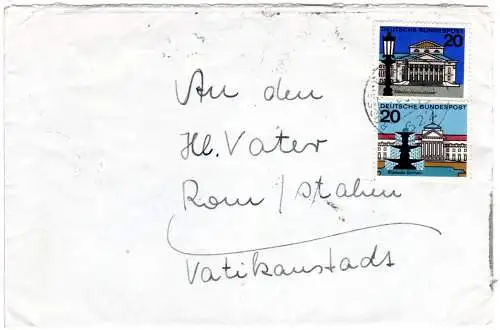 DEUTSCHE BUNDESPOST
20
DEUTSCHE BUNDESPOST
20
An den
Hl. Vater
Rom/Stalien
Vatikanstadt